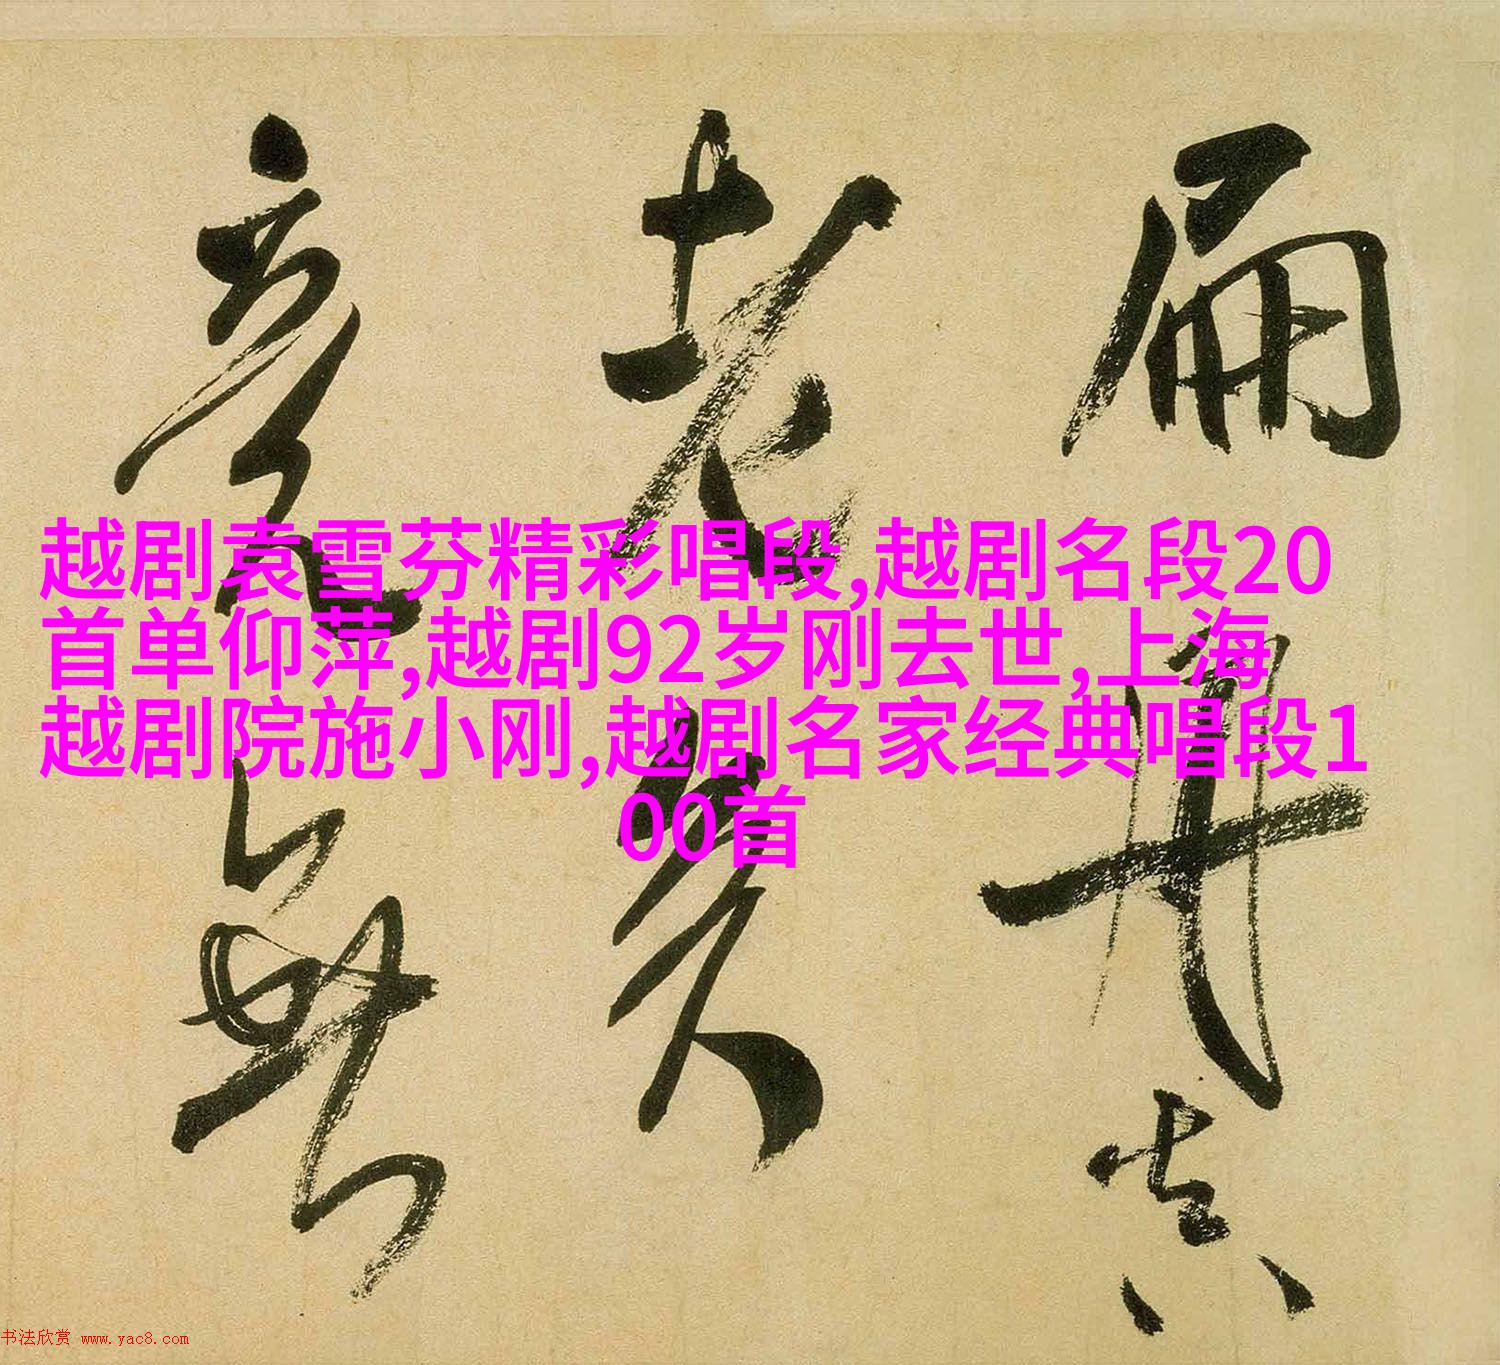 扁舟真
老矣
竟無
越剧袁雪芬精彩唱段,越剧名段20
首单仰萍,越剧92岁刚去世,上海
越剧院施小刚,越剧名家经典唱段1
00首
书法欣赏 www.yac8.com